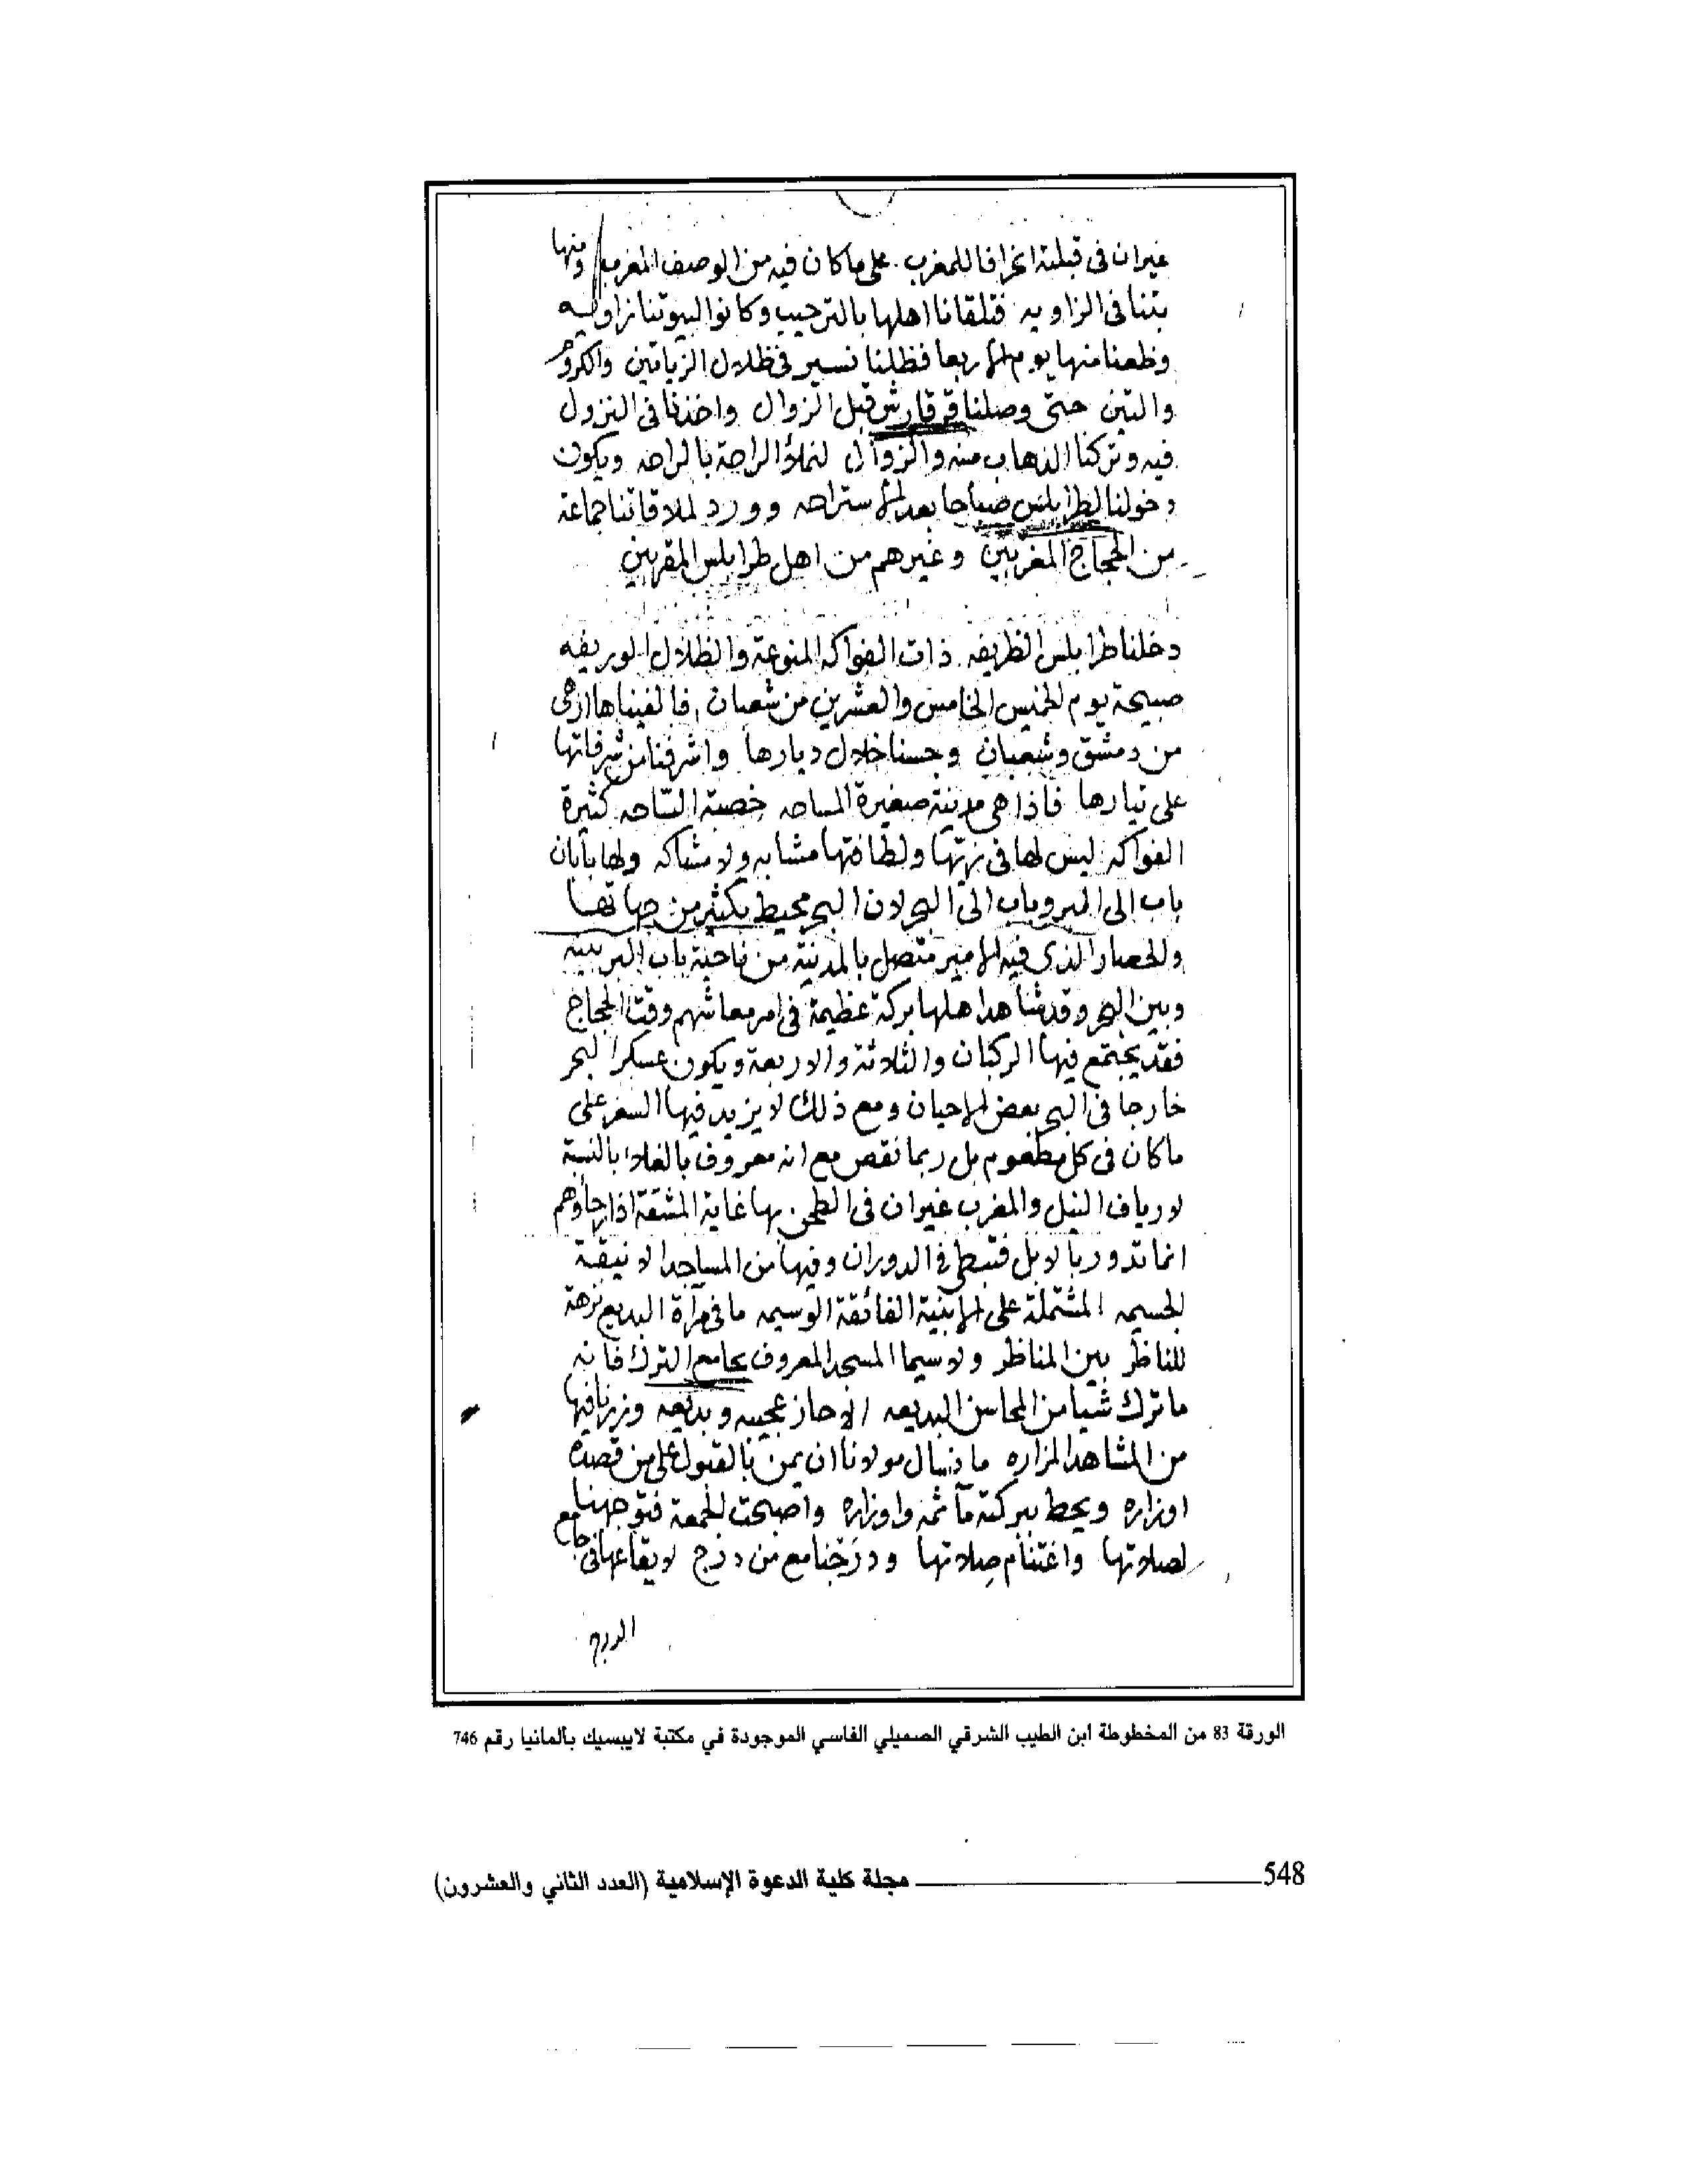 غيران في قبلته انحرافا للمغرب على ما كان فيه من الوصف المغرب ومنها
بتنا في الزاويه فتلقانا اهلها بالترحيب وكانوا لبيوتنا زاويه
وظعنا منها يوم الاربعا فظلنا نسير في ظلال الزياتين والكروم
والتين حتى وصلنا قرقارش قبل الزوال واخذنا في النزول
فيه وتركنا الذهاب منه والزوال لنملأ الراحة بالراحه ويكون
دخولنا لطرابلس صباحا بعد الاستراحه وورد لملاقاتنا جماعة
من الحجاج المغربين وغيرهم من اهل طرابلس المقربين
دخلنا طرابلس الظريفه ذات الفواكه المنوعة والظلال الوريفه
صبيحة يوم الخميس الخامس والعشرين من شعبان فالفيناها ازهى
من دمشق وشعبان وجسنا خلال ديارها واشرفنا من شرفاتها
على تيارها فاذا هي مدينة صغيرة المساحه خصبة الساحه كثيرة
الفواكه ليس لها في نزهتها ولطافتها مشابه ولا مشاكه ولها بابان
باب الى البر وباب الى البحر لان البحر محيط بكثير من جهاتها
والحصار الذي فيه الامير متصل بالمدينة من ناحية باب البر بينه
وبين البحر وقد شاهد اهلها بركة عظيمة في امر معاشهم وقت الحجاج
فقد يجتمع فيها الركبان والثلاثة والاربعة ويكون عسكر البحر
خارجا في البحر بعض الاحيان ومع ذلك لا يزيد فيها السعر على
ما كان في كل مطعوم بل ربما نقص مع انه معروف بالغلاء بالنسبة
لارياف النيل والمغرب غيران في الطحن بها غاية المشقة اذ ارحاؤهم
انما تدور بالابل فتبطي في الدوران وفيها من المساجد الانيقة
الجسيمه المشتملة على الابنية الفائقة الوسيمه ما في مرآة البديع نزهة
للناظر بين المناظر ولاسيما المسجد المعروف بجامع الترك فانه
ما ترك شيا من المحاسن البديعه الا حاز عجيبه وبديعه وزرنا فيها
من المشاهد المزاره ما نسال مولانا ان يمن بالقبول على من قصده
اوزاره ويحط ببركته مآثمه واوزاره واصبحت الجمعة فتوجهنا
لصلاتها واغتنام صلاتها ودرجنا مع من درج لايقاعها في جامع
الدروج
الورقة 83 من المخطوطة ابن الطيب الشرقي الصميلي الفاسي الموجودة في مكتبة لايبسيك بألمانيا رقم 746
548 مجلة كلية الدعوة الإسلامية (العدد الثاني والعشرون)